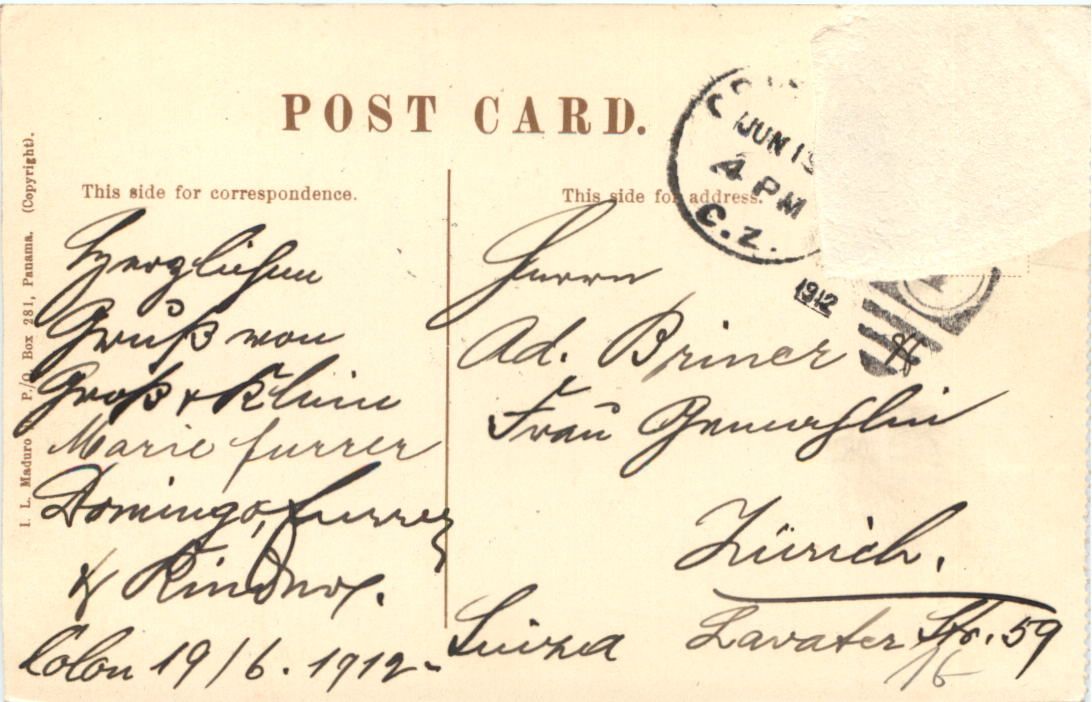 POST CARD.
This side for correspondence.
This side for address.
I. L. Maduro P./O. Box 281, Panama. (Copyright).
JUN 19
4 PM
C. Z.
1912
Herzlichen
Gruß von
Groß & Klein
Marie Furrer
Domingo Furrer
& Kinder.
Colon 19/6. 1912-
Herrn
Ad. Briner
Frau
Zürich.
Suiza
Lavater Str. 59